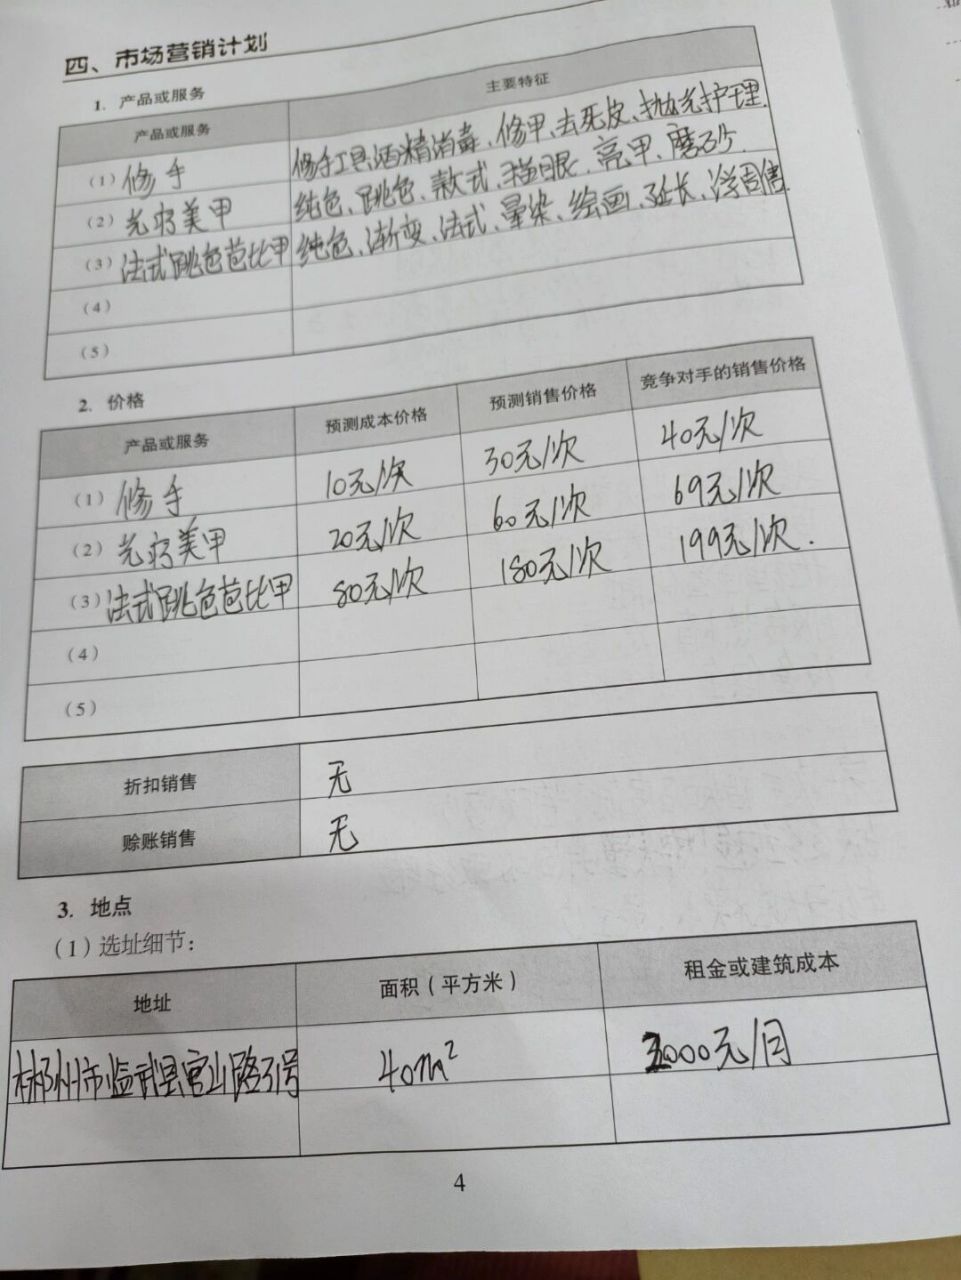 四、市场营销计划
1. 产品或服务
产品或服务 主要特征
（1）修手 修手工具酒精消毒、修甲、去死皮、抛光护理.
（2）光疗美甲 纯色、跳色、款式、猫眼、亮甲、磨砂.
（3）法式跳色芭比甲 纯色、渐变、法式、晕染、绘画、延长、浮雕.
（4）
（5）
2. 价格
产品或服务 预测成本价格 预测销售价格 竞争对手的销售价格
（1）修手 10元/次 30元/次 40元/次
（2）光疗美甲 20元/次 60元/次 69元/次
（3）法式跳色芭比甲 80元/次 180元/次 199元/次.
（4）
（5）
折扣销售 无
赊账销售 无
3. 地点
（1）选址细节：
地址 面积（平方米） 租金或建筑成本
郴州市临武县官山路31号 40m² 2000元/月
4